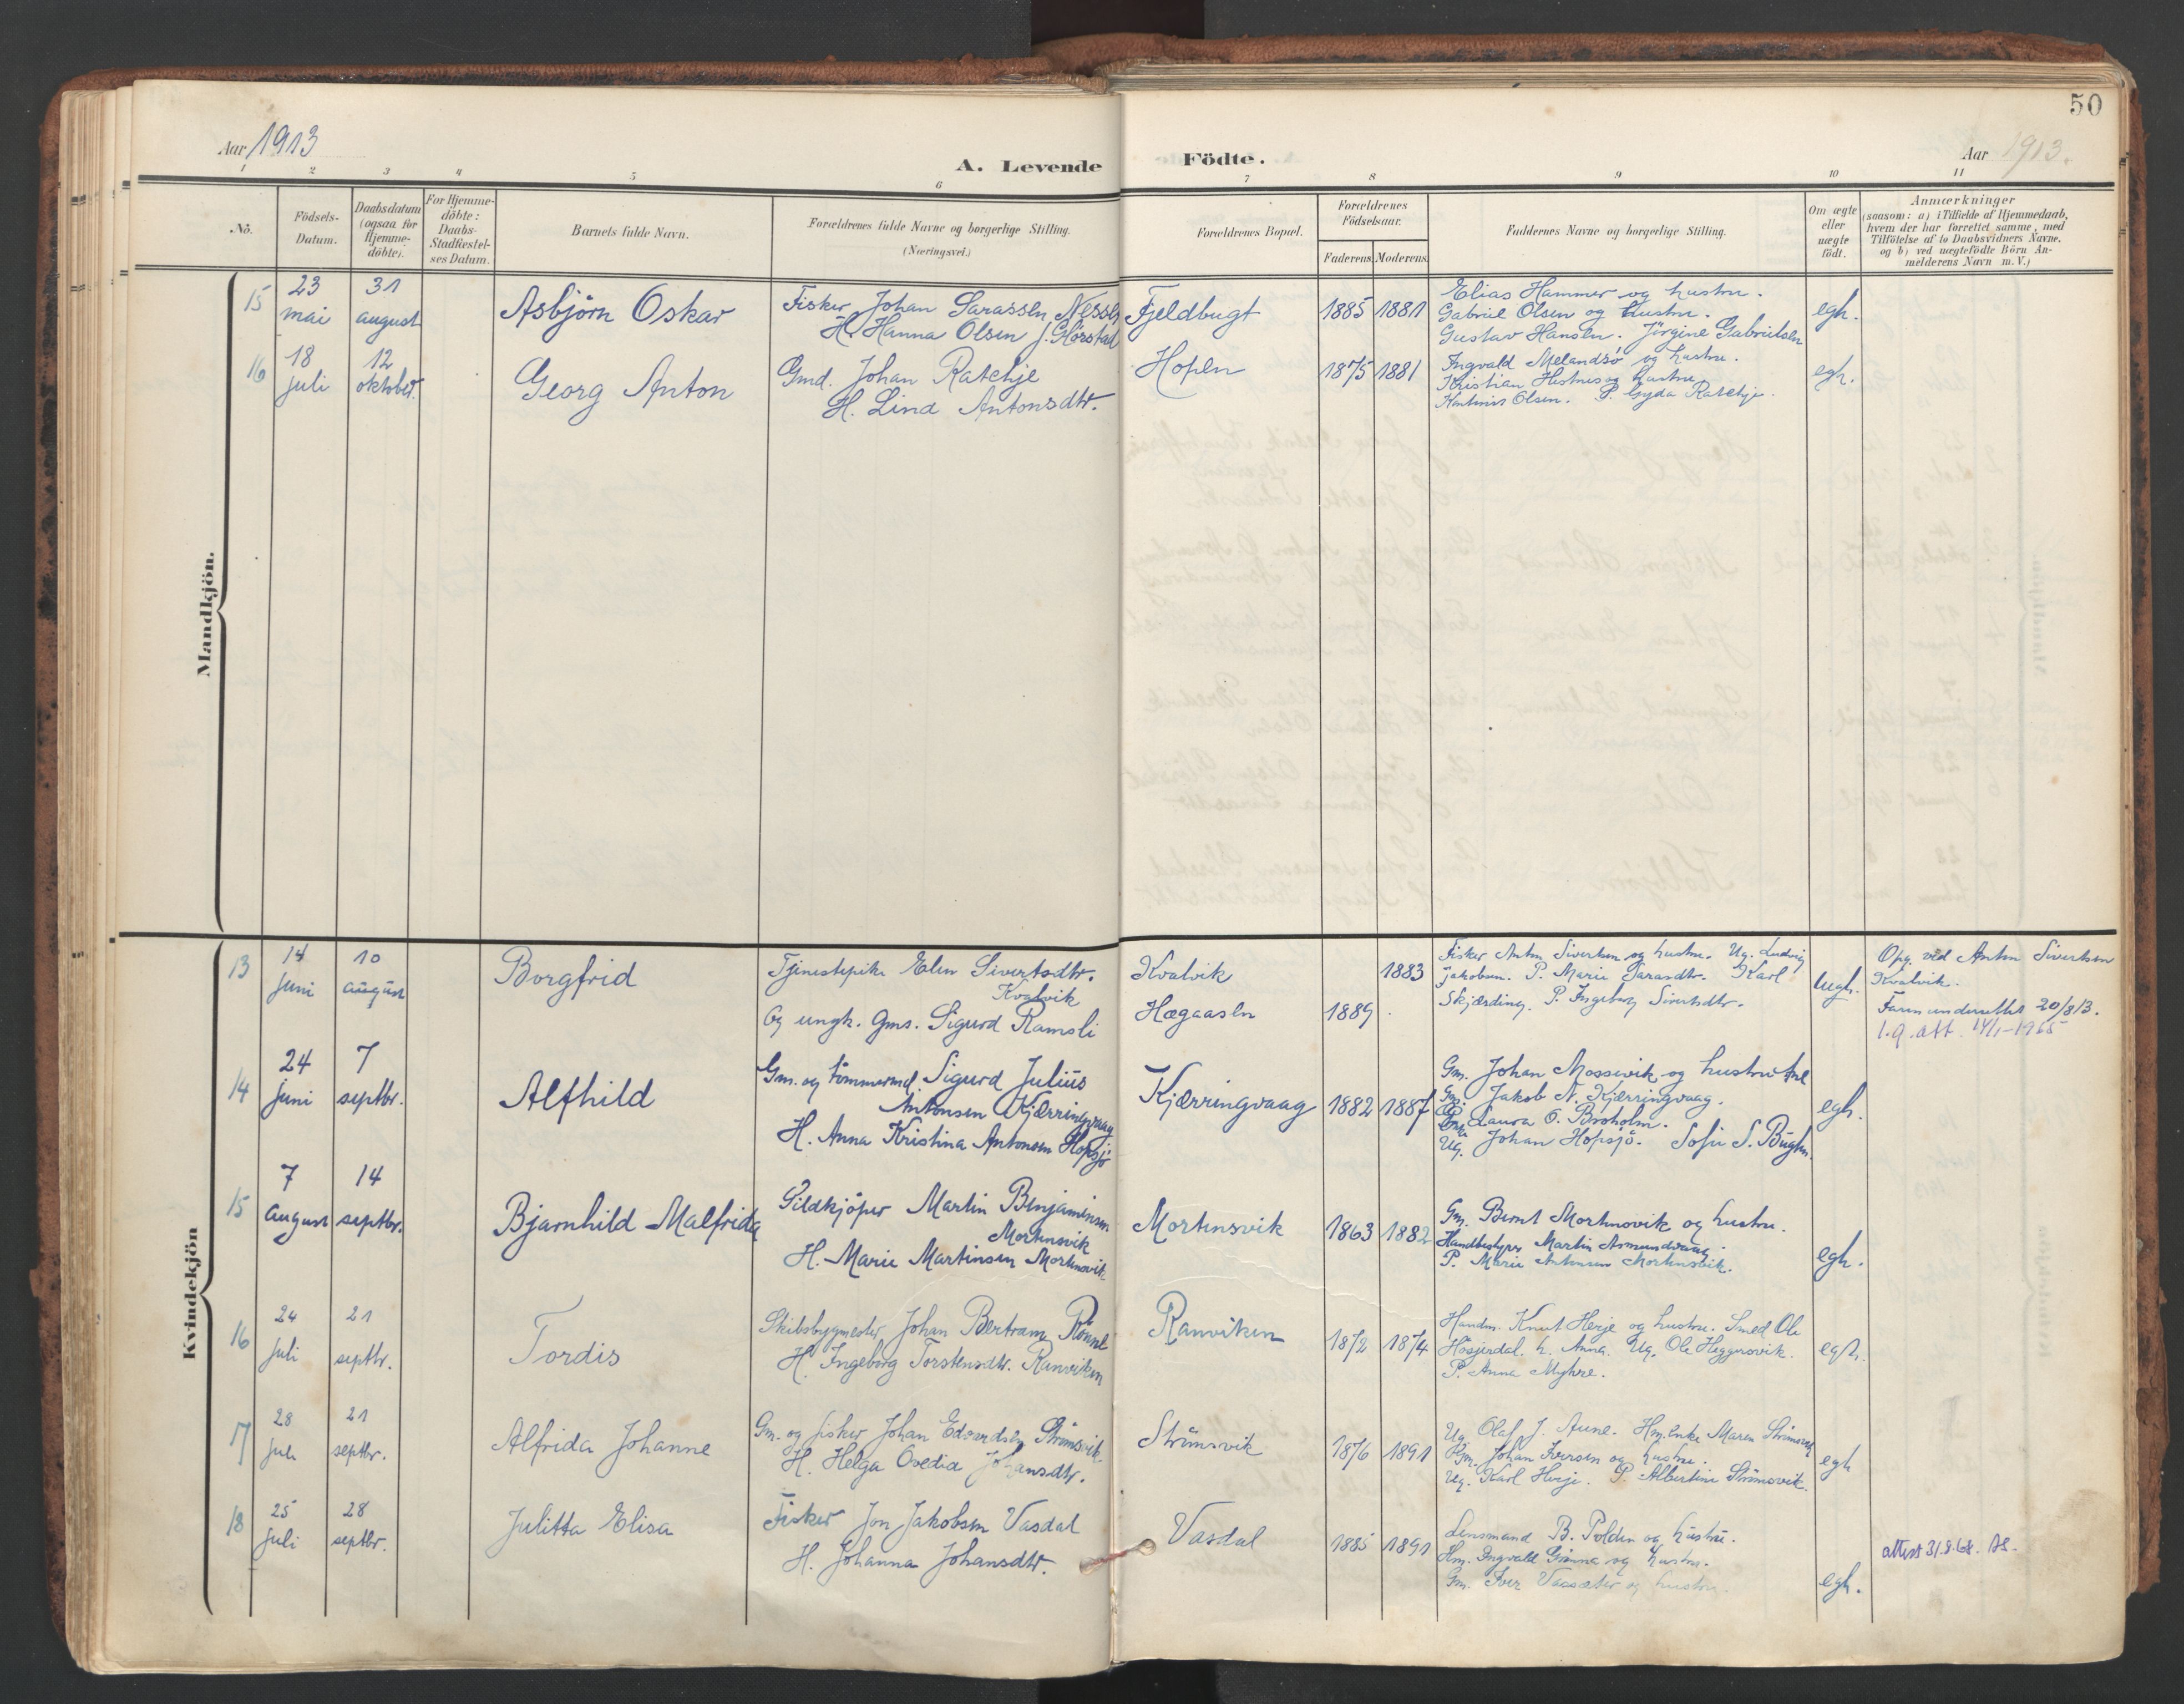 50
Aar 1913
A. Levende Födte.
Aar 1913.
1 2 3 4 5 6 7 8 9 10 11
No.
Födsels-
Datum.
Daabsdatum
(ogsaa for
Hjemme-
döbte).
For Hjemme-
döbte:
Daabs-
Stadfæstel-
ses Datum.
Barnets fulde Navn.
Forældrenes fulde Navne og borgerlige Stilling.
(Næringsvei.)
Forældrenes Bopæl.
Forældrenes
Födselsaar.
Faderens. Moderens.
Faddernes Navne og borgerlige Stilling.
Om ægte
eller
uægte
födt.
Anmærkninger
(saasom: a) i Tilfælde af Hjemmedaab,
hvem der har forrettet samme, med
Tilföielse af to Daabsvidners Navne,
og b) ved uægtefödte Börn An-
melderens Navn m. V.)
Mandkjön.
15
23
mai
31
august
Asbjörn Oskar
Fisker Johan Sarassen Nesset
H. Hanna Olsen f. Glörstad
Fjeldbugt
1885 1881
Elias Hammer og hustru.
Gabriel Olsen og hustru.
Gustav Hansen. Jörgine Gabrielsen
egh.
16
18
juli
12
oktober.
Georg Anton
Gmd. Johan Ratchje
H. Lina Antonsdtr.
Hopen
1875 1881
Ingvald Melandsö og hustru.
Kristian Hestnes og hustru
Olsen. P. Gyda Ratchje.
egh.
Kvindekjön
13
14
juni
10
august
Borgfrid
Tjenestepike Elen Sivertsdtr.
Kvalvik
Og ungk. Gms. Sigurd Ramsli
Kvalvik
Hægaasen
1883
1889
Fisker Anton Sivertsen og hustru. Ug. Ludvig
Jakobsen. P. Marie Sarasdtr. Karl
Skjærding. P. Ingeborg Sivertsdtr.
uegh.
Opg. ved Anton Sivertsen
Kvalvik.
Faren underrettet 20/8 13.
l.g. att. 14/1-1965
14
24
juni
7
septbr.
Alfhild
Gm. og tömmermd. Sigurd Julius
Antonsen Kjærringvaag
H. Anna Kristina Antonsen Hopsjö
Kjærringvaag
1882 1887
Gm. Johan Mossevik og hustru
Gm. Jakob N. Kjærringvaag.
Laura O. Broholm.
Ug. Johan Hopsjö. Sofie S.
egh.
15
7
august
14
septbr.
Bjarnhild Malfrida
Sildkjöper Martin Benjaminsen
Mortensvik
H. Marie Martinsen Mortensvik
Mortensvik
1863 1882
Gm. Bernt Mortensvik og hustru.
Handbestyrer Martin Asmundvaag.
P. Marie Antonsen Mortensvik.
egh.
16
24
juli
21
septbr.
Tordis
Skibsbygmester Johan Bertram Rönne
H. Ingeborg Torstensdtr. Ranviken
Ranviken
1872 1874
Handm. Knut Herje og hustru. Smed Ole
Hösjerdal. h. Anna. Ug. Ole Heggersvik.
P. Anna Myhre.
egh.
17
28
juli
21
septbr.
Alfrida Johanne
Gm. og fisker Johan Edvardsen Strömsvik
H. Helga Ovedia Johansdtr.
Strömsvik
1876 1891
Ug. Olaf J. Aune. Hm. Enke Maren Strömsvik
Hm. Johan Iversen og hustru.
Ug. Karl Herje. P. Albertine Strömsvik.
egh
18
25
juli
28
septbr.
Julitta Elisa
Fisker Jon Jakobsen Vasdal
H. Johanna Johansdtr.
Vasdal
1885 1891
Lensmand B. Polden og hustru.
Hm. Ingvald Grönna og hustru.
Gm. Iver Vaasæter og hustru.
egh.
attest 31.8.68. AS.